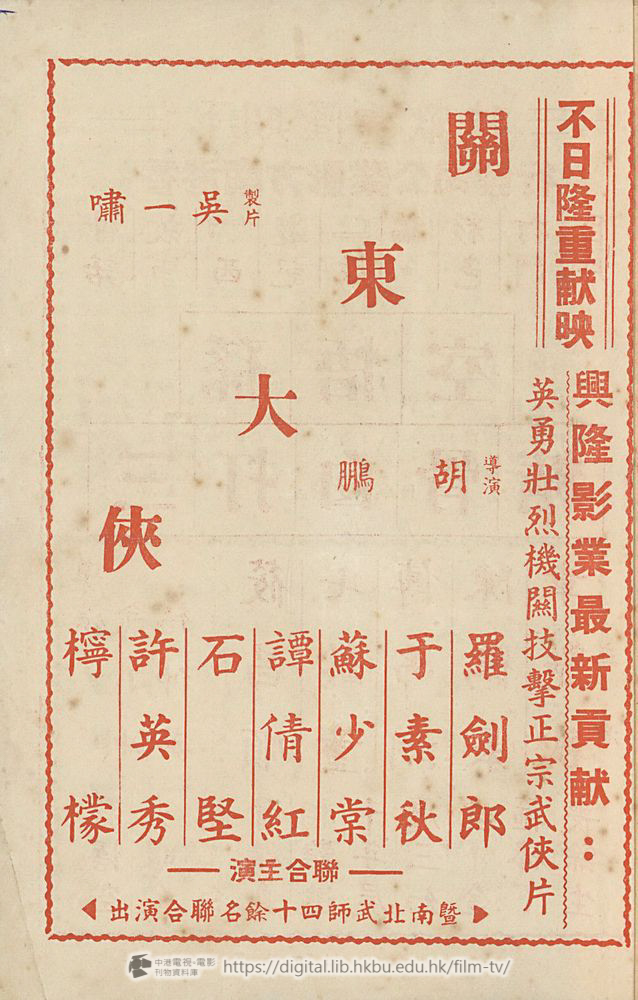 不日隆重献映
興隆影業最新貢献：
英勇壯烈機關技擊正宗武俠片
關東大俠
製片 吳一嘯
導演 胡鵬
羅劍郎
于素秋
蘇少棠
譚倩紅
石堅
許英秀
檸檬
聯合主演
暨南北武師四十餘名聯合演出
中港電視·電影刊物資料庫
https://digital.lib.hkbu.edu.hk/film-tv/